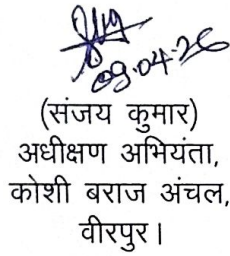 09.04.26
(संजय कुमार)
अधीक्षण अभियंता,
कोशी बराज अंचल,
वीरपुर।